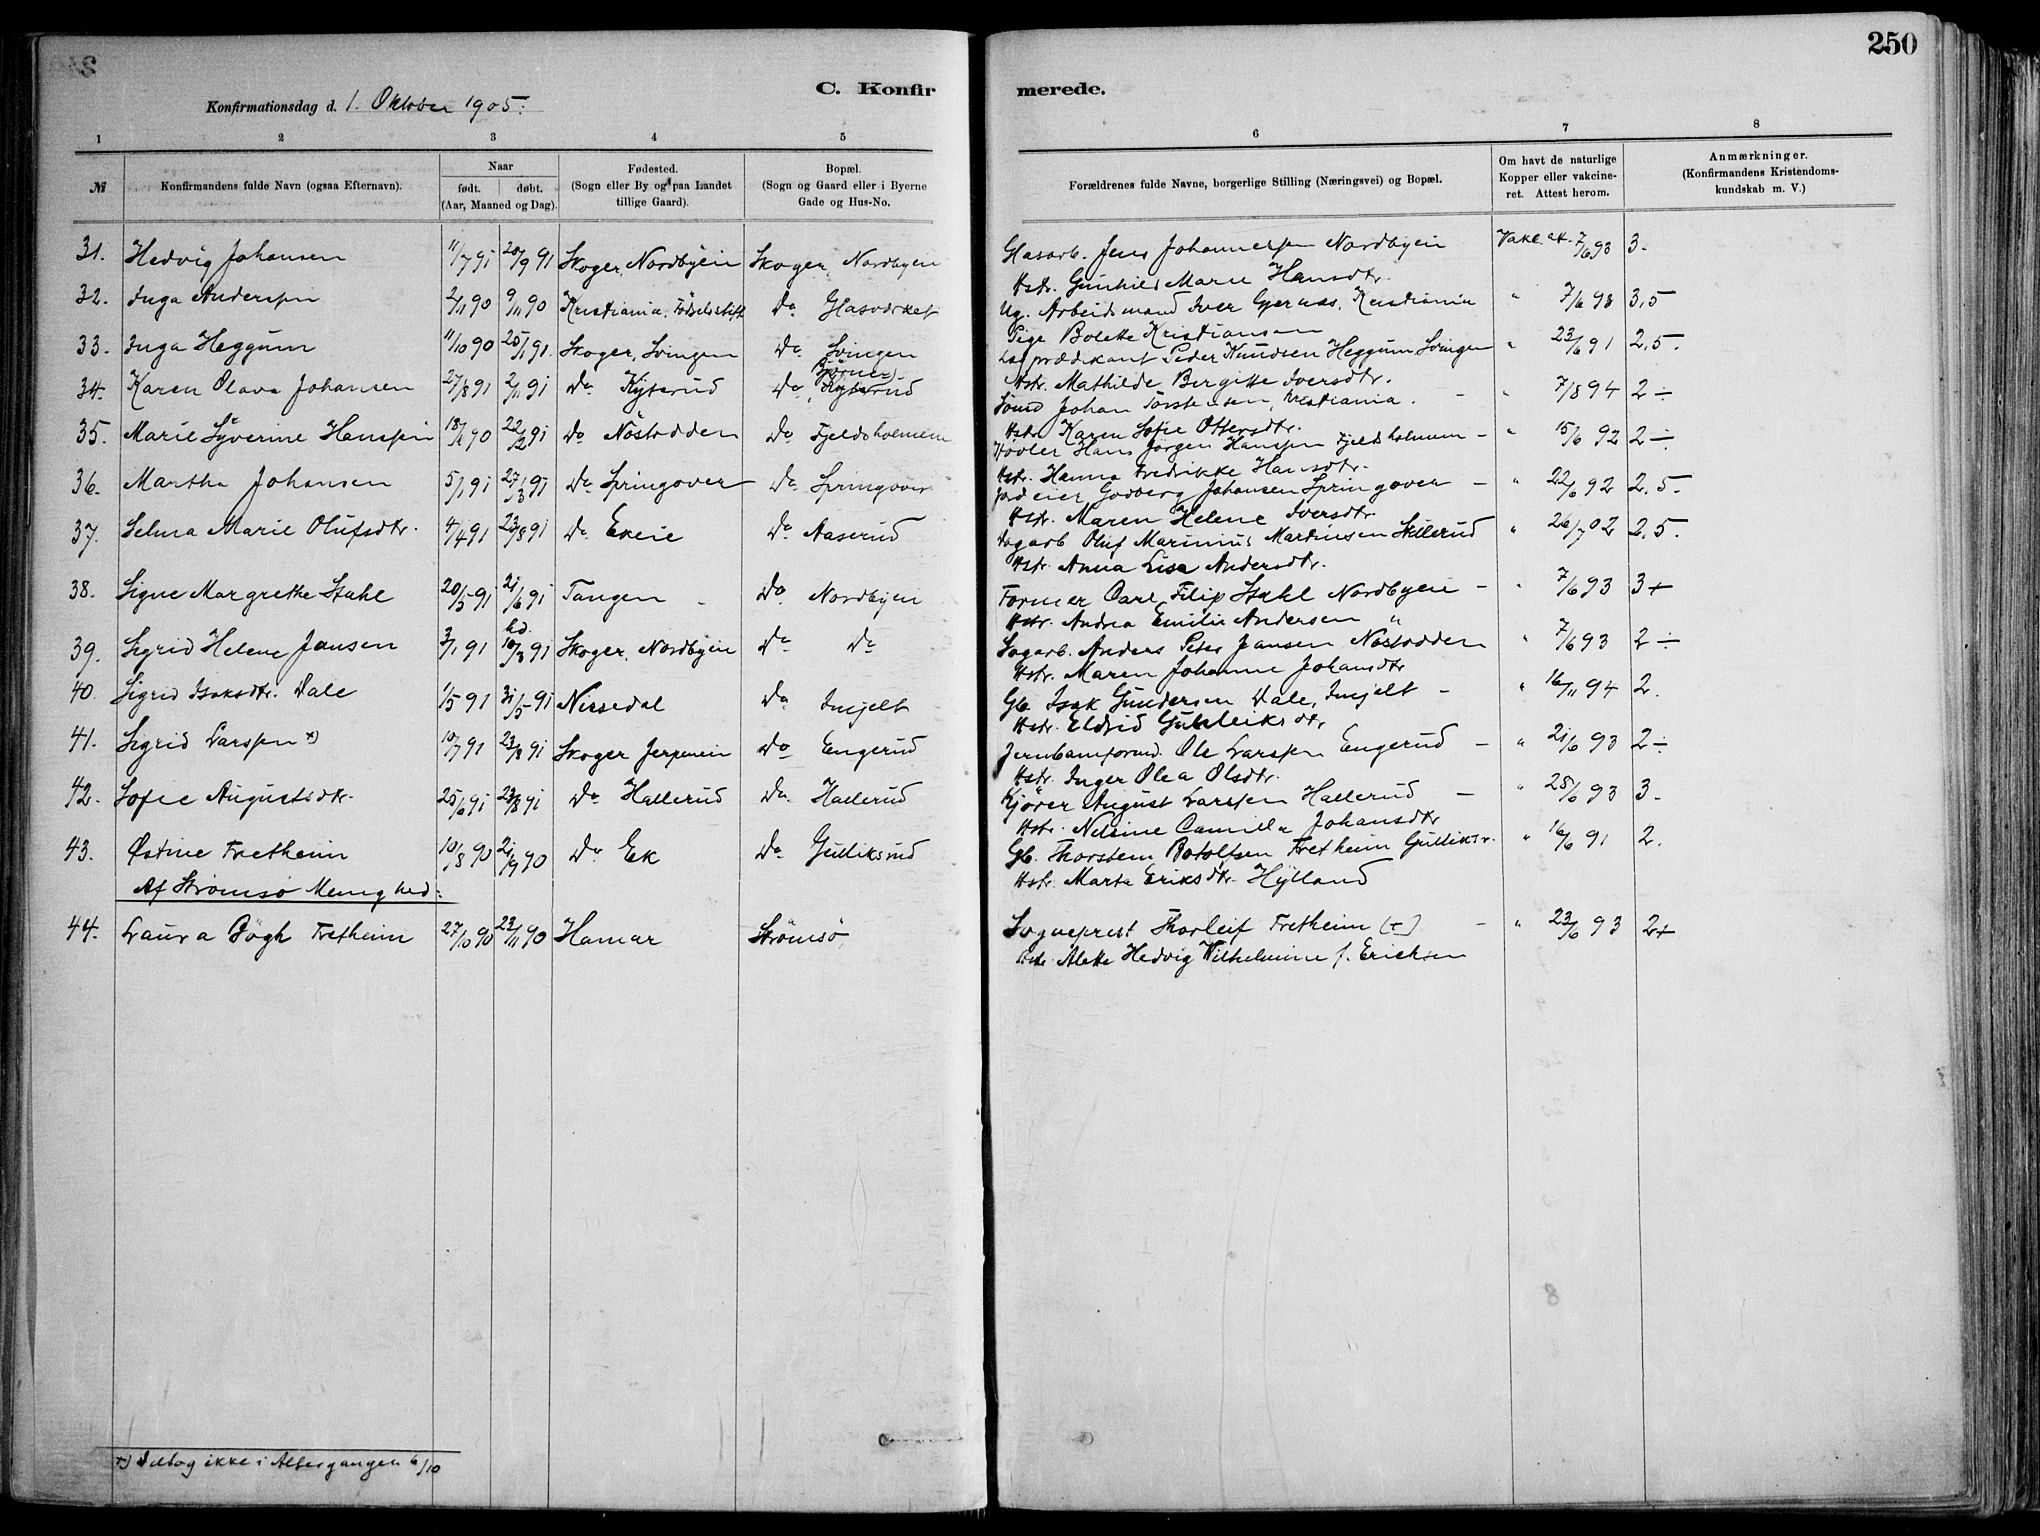 250
C. Konfirmerede.
Konfirmationsdag d. 1. Oktober 1905.
1 2 3 4 5 6 7 8
№
Konfirmandens fulde Navn (ogsaa Efternavn).
Naar
født. døbt.
(Aar, Maaned og Dag).
Fødested.
(Sogn eller By og paa Landet
tillige Gaard).
Bopæl.
(Sogn og Gaard eller i Byerne
Gade og Hus-No.
Forældrenes fulde Navne, borgerlige Stilling (Næringsvei) og Bopæl.
Om havt de naturlige
Kopper eller vakcine-
ret. Attest herom.
Anmærkninger.
(Konfirmandens Kristendoms-
kundskab m. V.)
31. Hedvig Johansen 11/7 91 20/9 91 Skoger, Nordbyen Skoger, Nordbyen Glasarb. Jens Johannessen Nordbyen Vakc. at. 7/6 93 3.
Hstr. Gunhild Marie Hansdtr.
32. Inga Anderssen 2/11 90 9/11 90 Kristiania, Fødselsstift Do Glasværket Ug. Arbeidsmand Iver Gjernæs, Kristiania " 7/6 93 3,5
Pige Bolette Kristiansen
33. Inga Heggum 11/10 90 25/1 91. Skoger, Svingen Do Svingen Lægprædikant Peder Knudsen Heggum Svingen " 23/6 91 2,5.
Hstr. Mathilde Bergitte Iversdtr.
34. Karen Olava Johansen 27/8 91 2/11 91 Do Kyterud Do Kyterud Johan Torstensen, Kristiania. - " 7/8 94 2 ÷
Hstr. Karen Sofie Ottersdtr.
35. Marie Syverine Hanssen 18/ 90 22/2 91 Do Nøstodden Do Fjeldsholmen Høvler Hans Jørgen Hanssen Fjeldsholmen - " 15/6 92 2 ÷
Hstr. Hanna Fredrikke Hansdtr.
36. Martha Johansen 5/1 91 27/3 91 Do Springover Do Springover Jordeier Godberg Johansen Springover - " 22/6 92 2,5.
Hstr. Maren Helene Iversdtr.
37. Selma Marie Olufsdtr. 4/4 91 23/8 91 Do Ekeie Do Aaserud Dagarb. Oluf Marinius Martinsen Skillerud " 26/7 02 2,5.
Hstr. Anna Lisa Andersdtr.
38. Signe Margrethe Stahl 20/5 91 21/6 91 Tangen - Do Nordbyen Former Carl Filip Stahl Nordbyen - " 7/6 93 3+
Hstr. Andrea Emilie Andersen "
39. Sigrid Helene Jansen 3/1 91 hd. 16/3 91 Skoger, Nordbyen Do Do Sagarb. Anders Peter Jansen Nøstodden " 7/6 93 2 ÷
Hstr. Maren Johanne Johansdtr
40. Sigrid Isaksdtr. Dale 1/5 91 31/5 91 Nissedal Do Imjelt Gb. Isak Gundersen Dale, Imjelt - " 16/11 94 2.
Hstr. Eldrid Gulleiksdtr
41. Sigrid Larssen x) 10/7 91 23/8 91 Skoger Jerpenein Do Engerud Jernbaneformd. Ole Larssen Engerud - " 21/6 93 2 ÷
Hstr. Inger Olea Olsdtr.
42. Sofie Augustsdtr. 25/6 91 23/8 91 Do Hallerud Do Hallerud Kjører August Larssen Hallerud - " 25/6 93 3.
Hstr. Nelsine Camilla Johansdtr
43. Østine Fretheim 10/8 90 21/9 90 Do Ek Do Gulliksrud Gb. Thorstein Botolfsen Fretheim Gulliksr. " 16/6 91 2.
Hstr. Marta Eriksdtr. Hylland
Af Strømsø Menighed:
44. Laura Bøgh Fretheim 27/10 90 23/11 90 Hamar Strømsø. Sogneprest Thorleif Fretheim (+) - " 23/6 93 2+
Hstr. Alette Hedvig Wilhelmine f. Erichsen
x) Deltog ikke i Altergangen 6/10